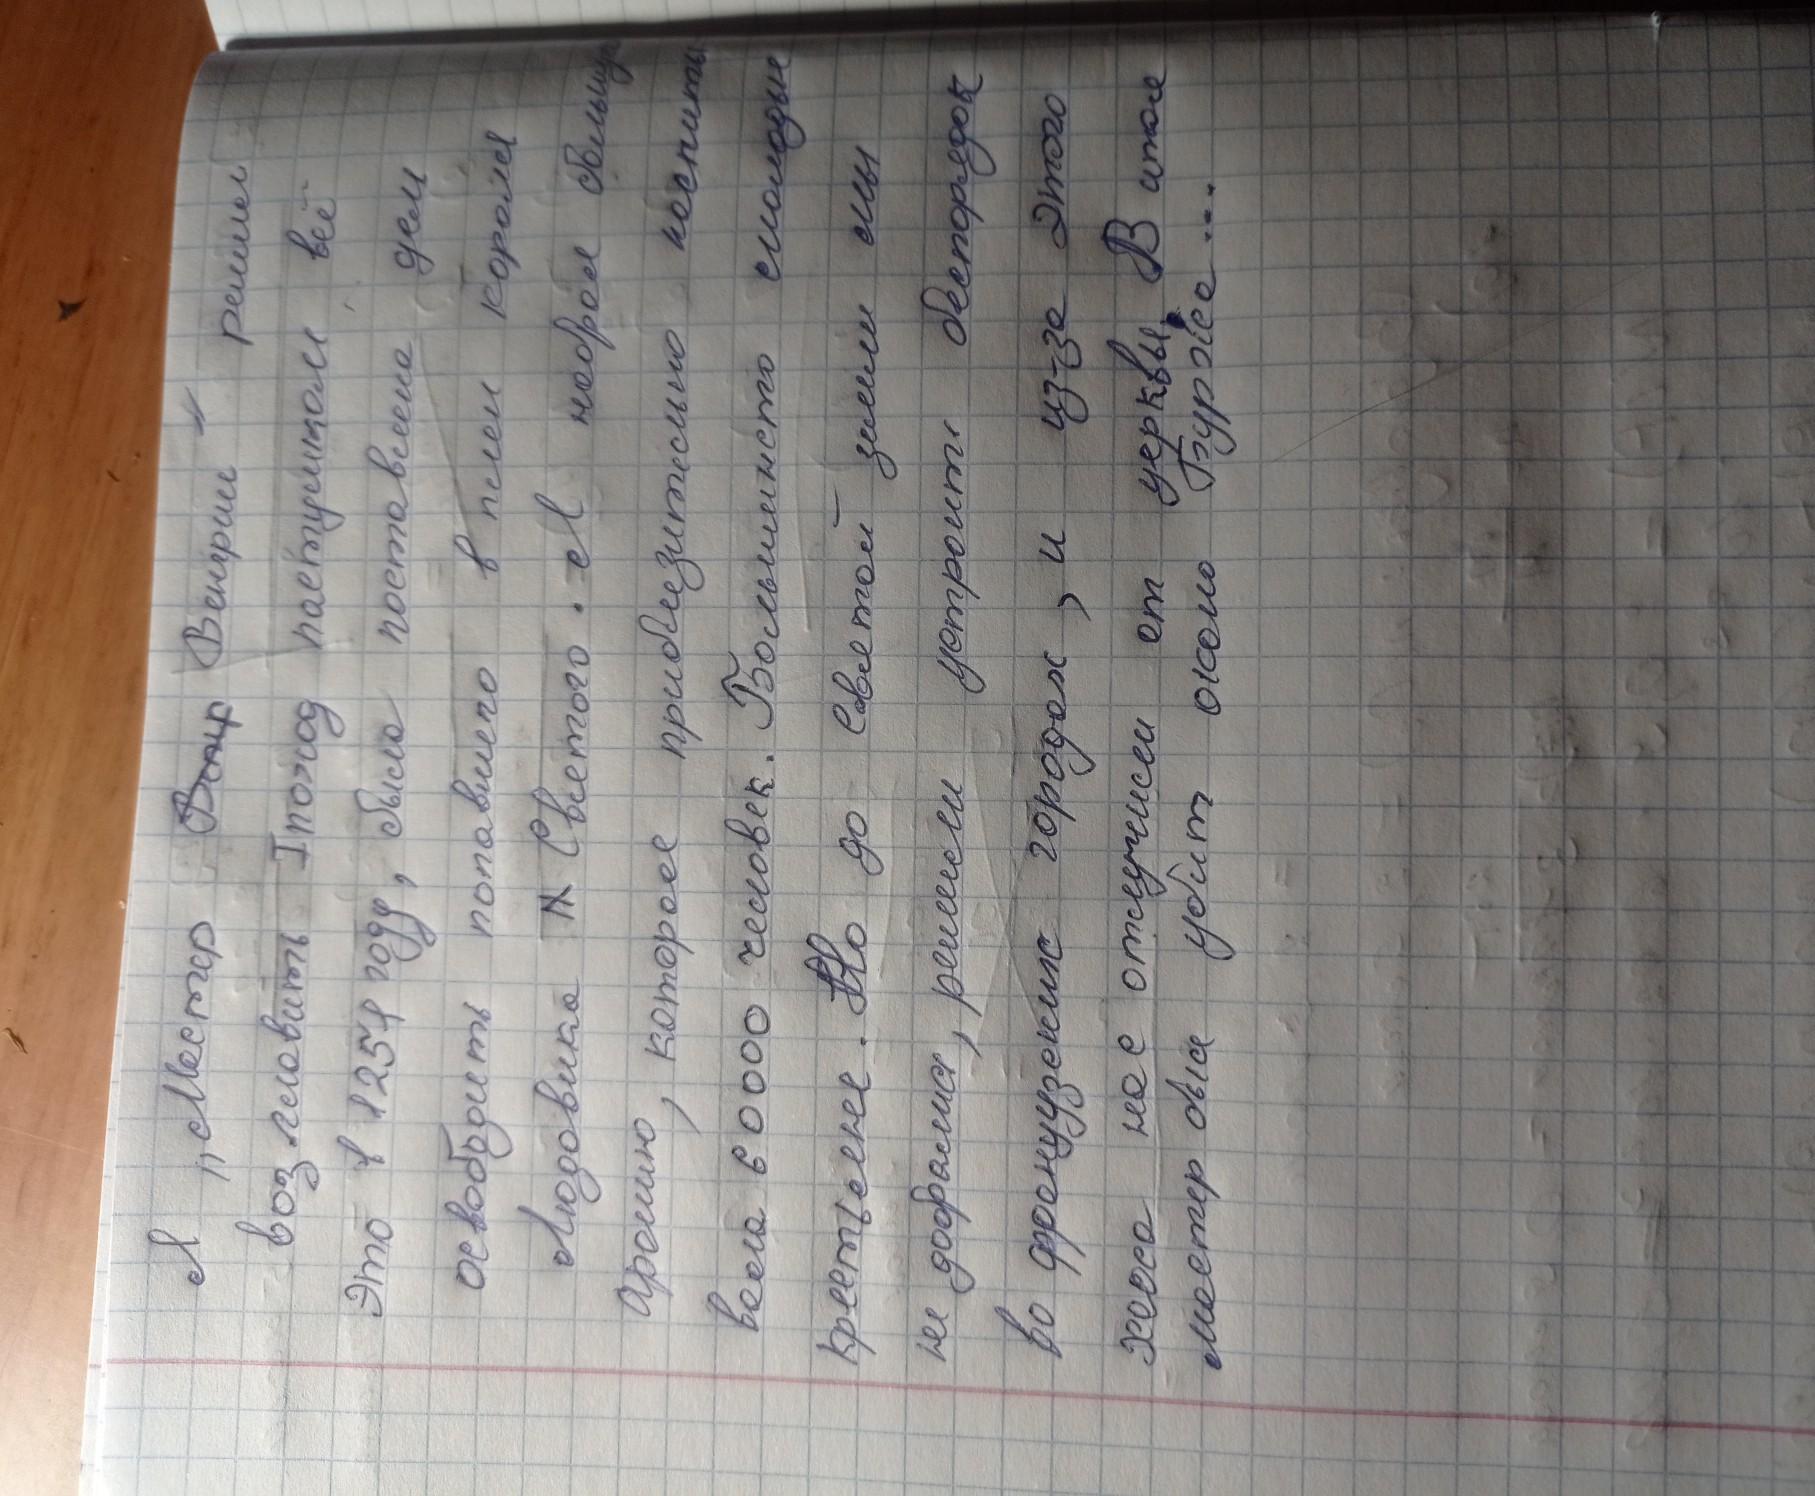 Я „Мастер Венгрии" решил
возглавить I поход пастушков всё
Это в 1251 году, была поставлена цель
освободить попавшего в плен короля
Людовика Святого. Я набрал свыше
Армию, которая приблизительно насчиты
вала 60000 человек. Большинство молодые
крестьяне. Но до Святой земли мы
не добрались, решили устроить беспорядок
во французских городах, и из-за этого
хаоса нас отлучили от церквы, В итоге
мастер был убит около Буржа...